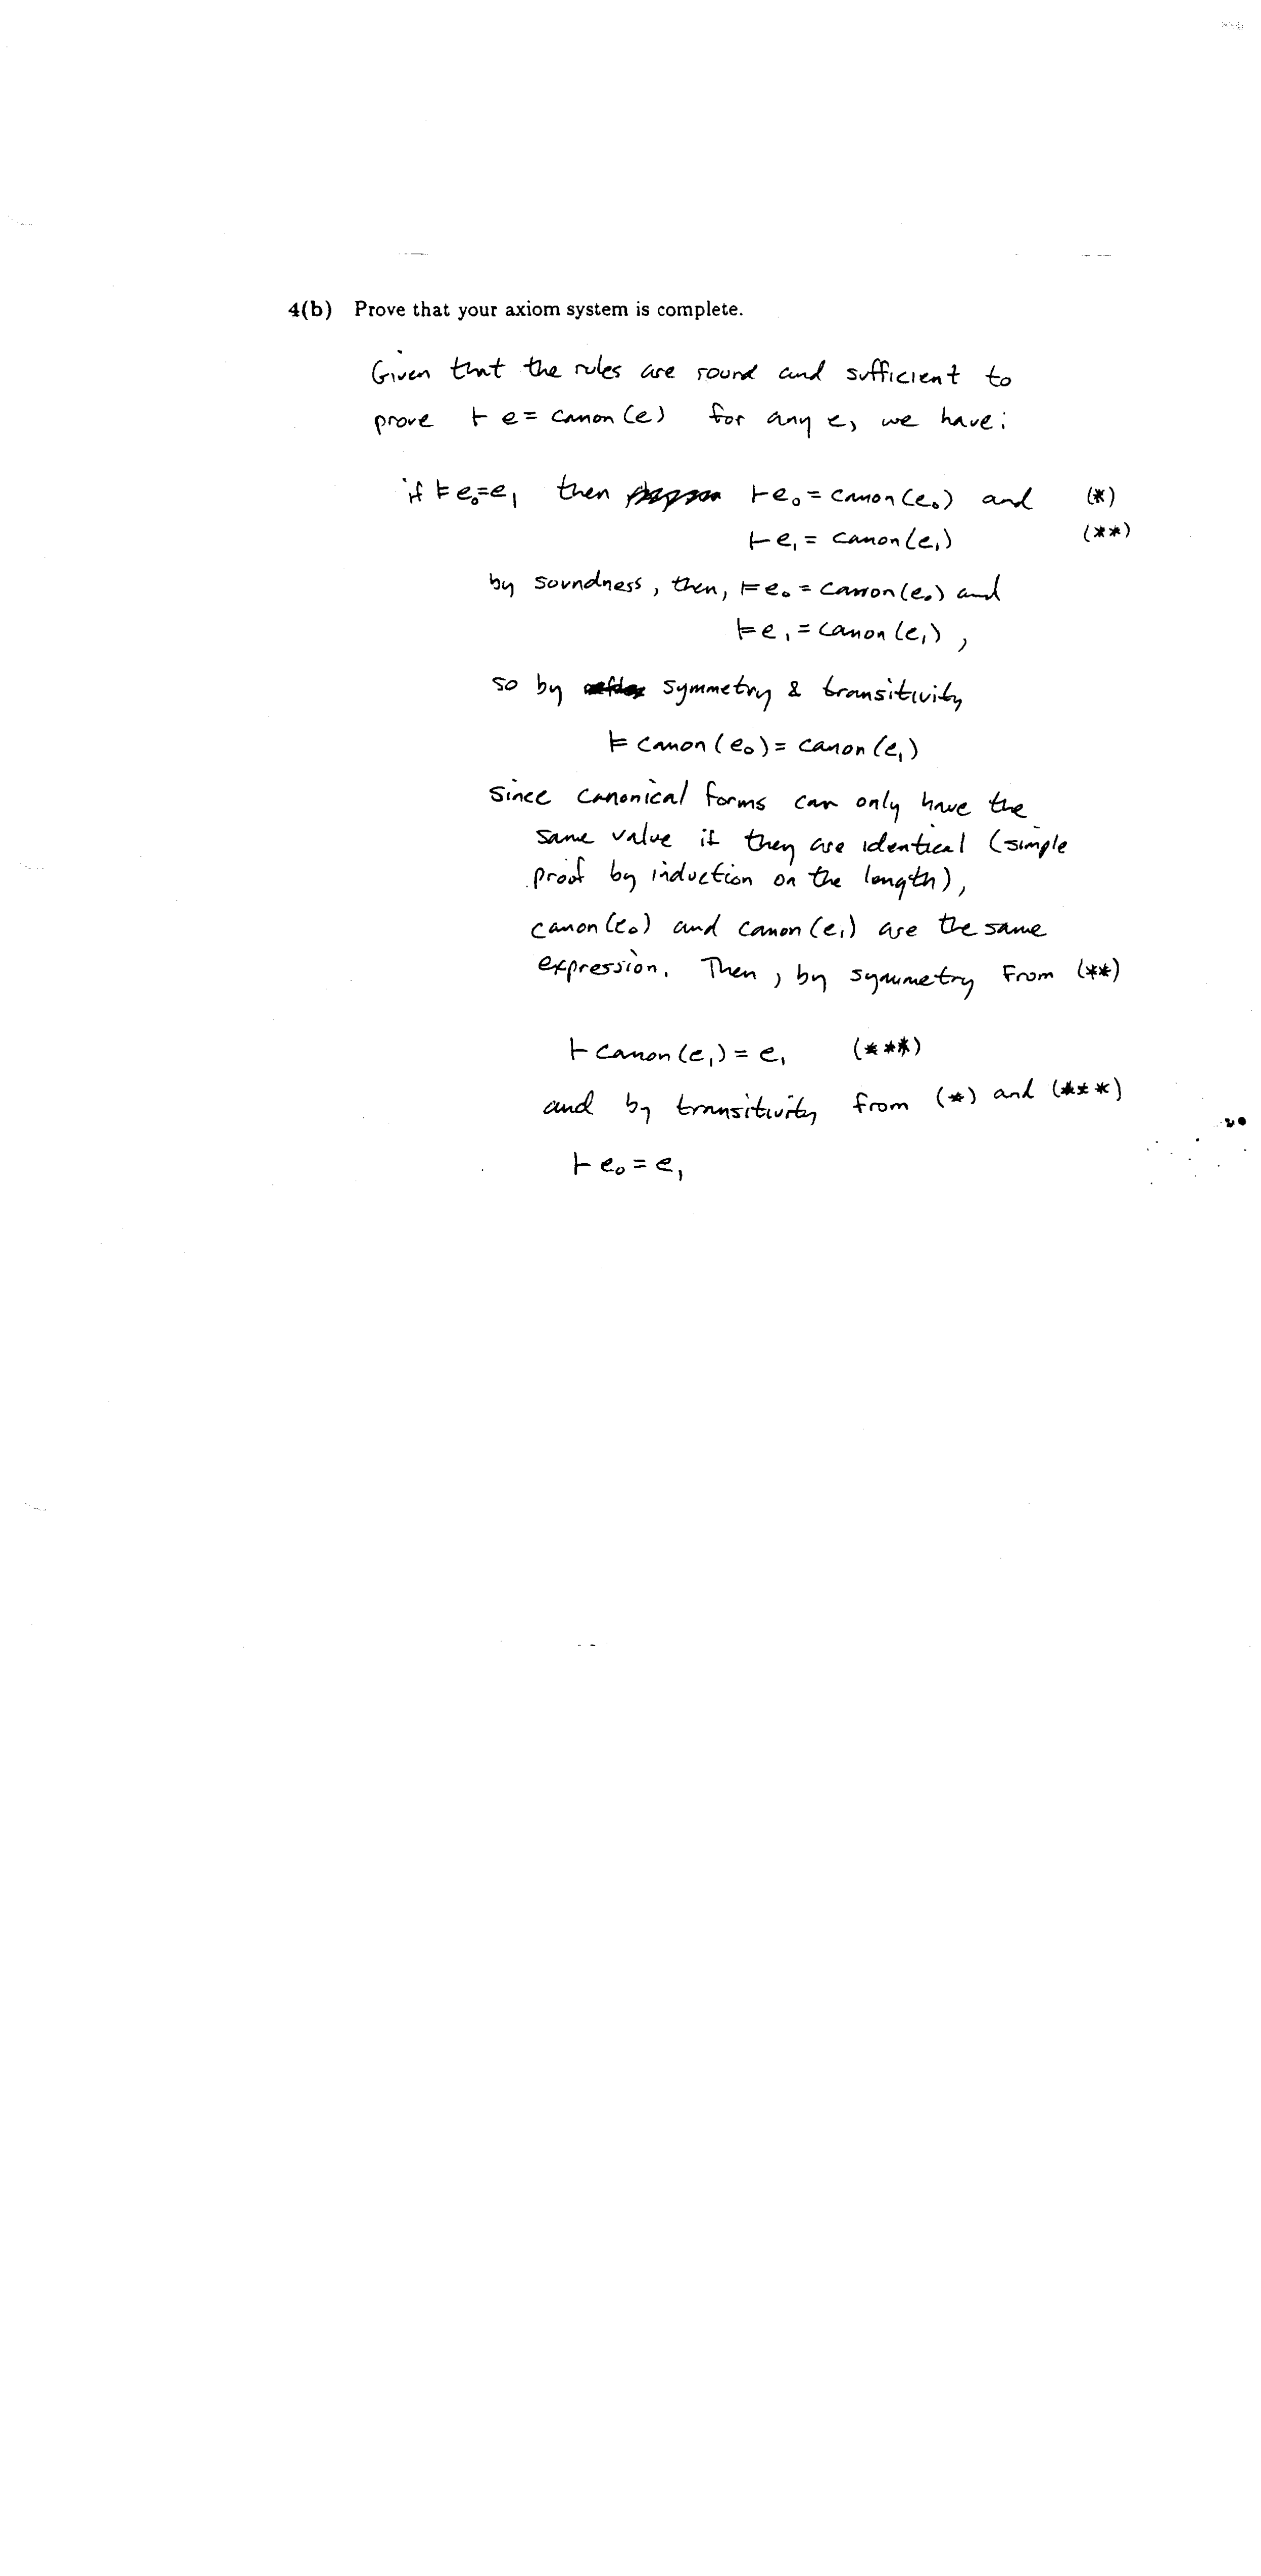 4(b) Prove that your axiom system is complete.
Given that the rules are sound and sufficient to
prove ⊢ e = canon(e) for any e, we have:
if ⊨ e₀=e₁ then ⊢ e₀ = canon(e₀) and (*)
⊢ e₁ = canon(e₁) (**)
by soundness, then, ⊨ e₀ = canon(e₀) and
⊨ e₁ = canon(e₁),
so by symmetry & transitivity
⊨ canon(e₀) = canon(e₁)
since canonical forms can only have the
same value if they are identical (simple
proof by induction on the length),
canon(e₀) and canon(e₁) are the same
expression. Then, by symmetry from (**)
⊢ canon(e₁) = e₁ (***)
and by transitivity from (*) and (***)
⊢ e₀ = e₁